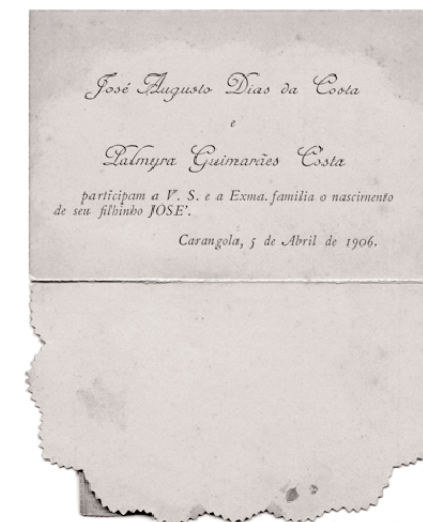 José Augusto Dias da Costa
e
Palmyra Guimarães Costa
participam a V. S. e a Exma. familia o nascimento
de seu filhinho JOSE'.
Carangola, 5 de Abril de 1906.